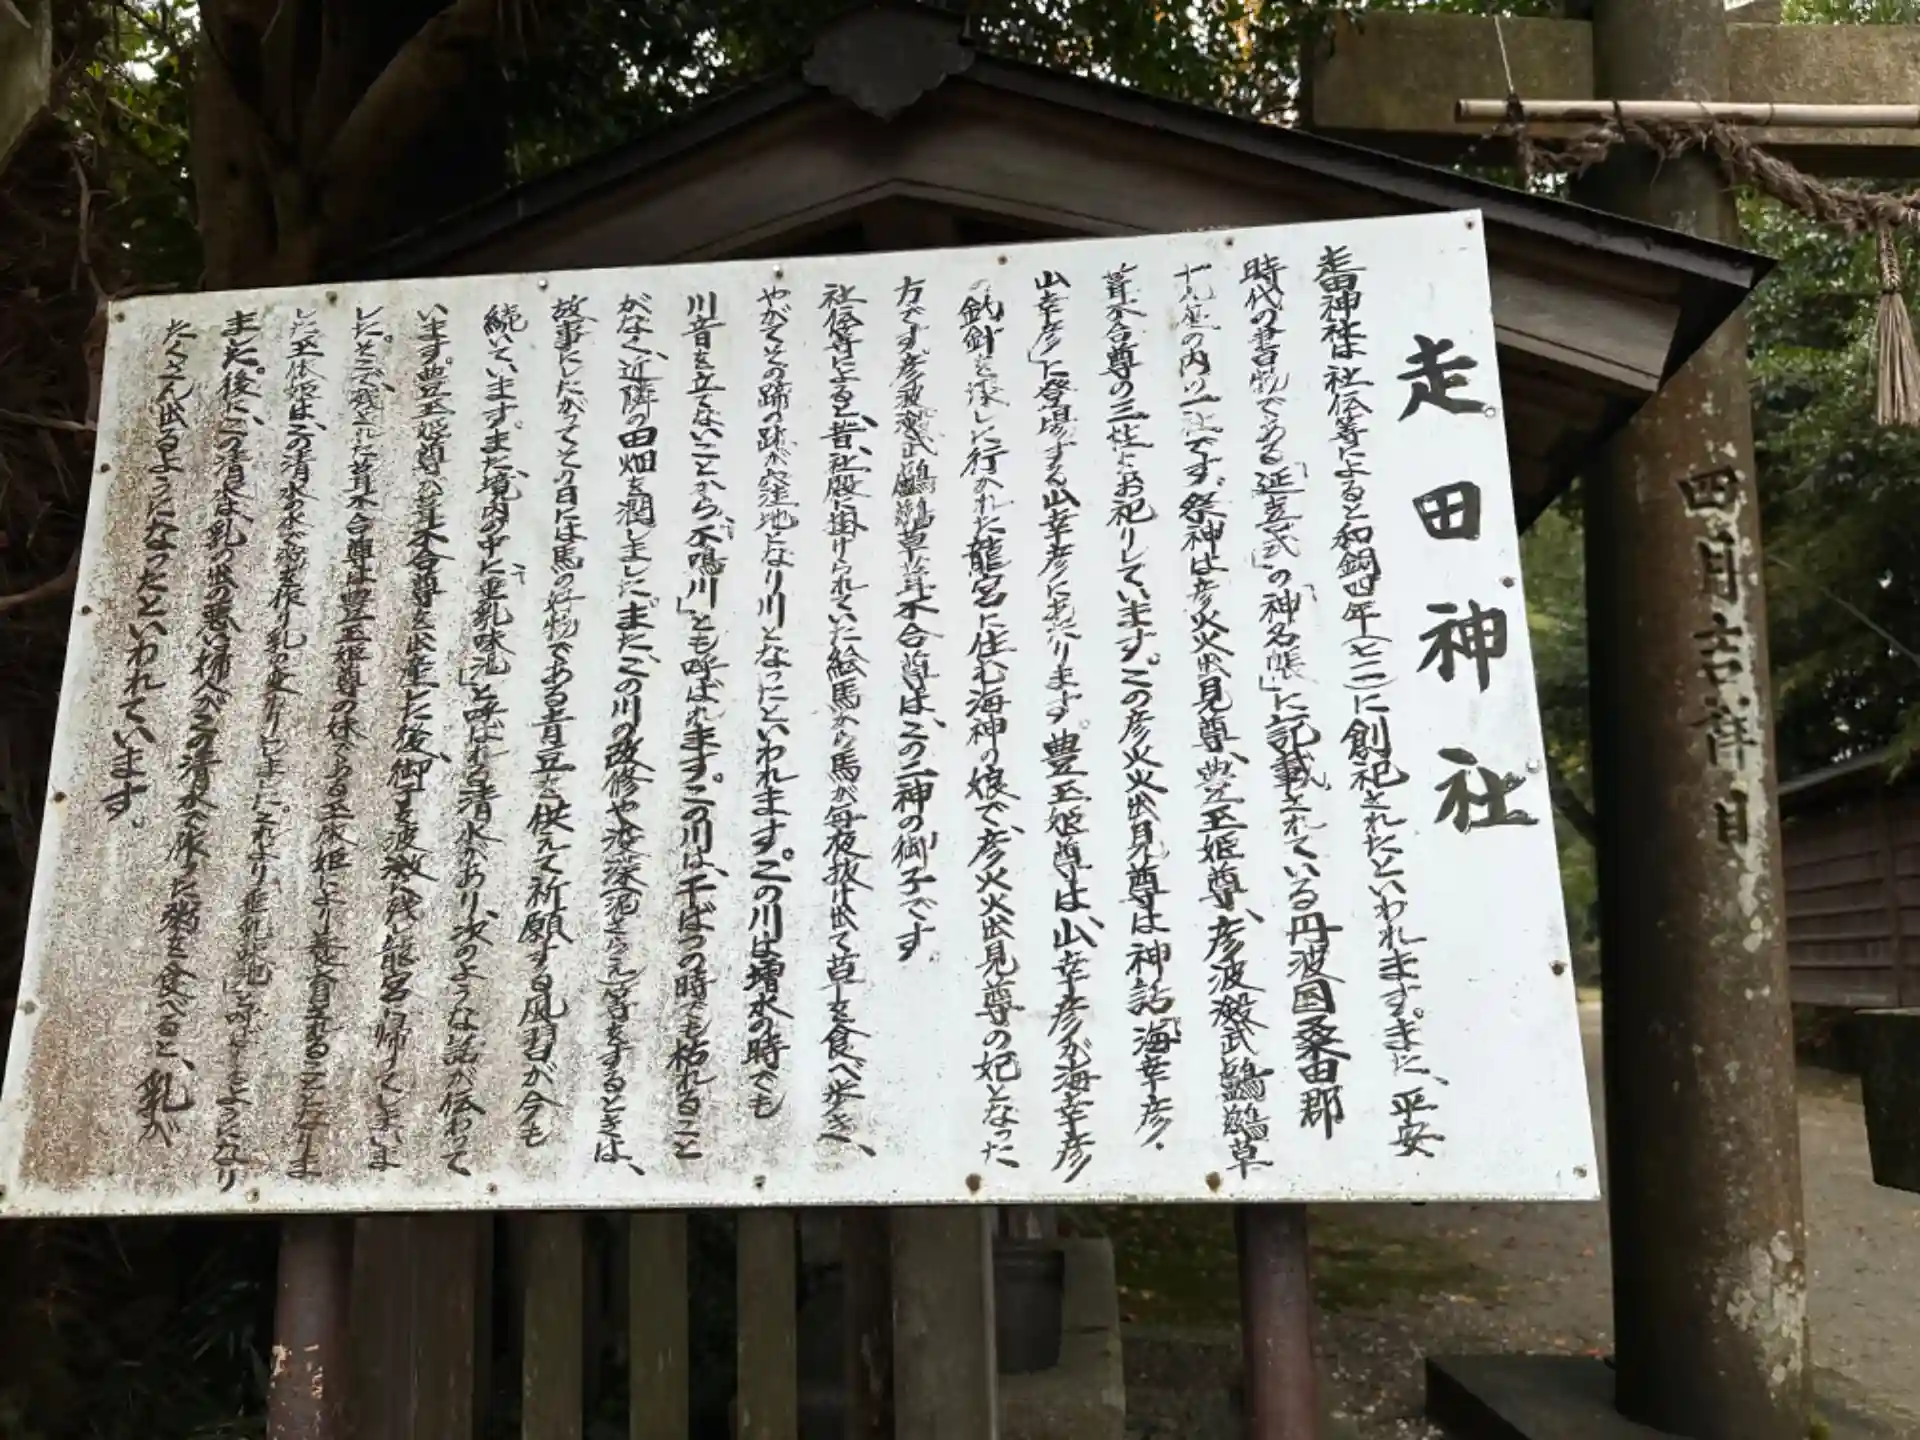 走田神社
走田神社は社伝等によると和銅四年(七一一)に創祀されたといわれます。また、平安
時代の書物である「延喜式」の「神名帳」に記載されている丹波国桑田郡
十九座の内の一社です。祭神は彦火火出見尊、豊玉姫尊、彦波瀲武鸕鶿草
葺不合尊の三柱をお祀りしています。この彦火火出見尊は神話「海幸彦・
山幸彦」に登場する山幸彦にあたります。豊玉姫尊は、山幸彦が海幸彦
の釣針を探しに行かれた龍宮に住む海神の娘で、彦火火出見尊の妃となった
方です。彦波瀲武鸕鶿草葺不合尊は、この二神の御子です。
社伝等によると、昔、社殿に掛けられていた絵馬から馬が毎夜抜け出て草を食べ歩き、
やがてその蹄の跡が窪地となり川となったといわれます。この川は増水の時でも
川音を立てないことから、「不鳴川」とも呼ばれます。この川は、干ばつの時でも枯れること
がなく、近隣の田畑を潤しました。また、この川の改修や浚渫(泥さらえ)等をするときは、
故事にしたがってその日には馬の好物である青豆を供えて祈願する風習が今も
続いています。また、境内の中に「垂乳味池」と呼ばれる清水があり、次のような話が伝わって
います。豊玉姫尊が葺不合尊を出産した後、御子を波瀲に残し龍宮に帰りてしまいま
した。そこで残された葺不合尊は豊玉姫尊の妹である玉依姫により養育されることになりま
した。玉依姫は、この清水の水で粥を作り乳の代わりにしました。これより「垂乳味池」と呼ばれるようになり
ました。後に、この清水は、乳の出の悪い婦人がこの清水で作った粥を食べると、乳が
たくさん出るようになったといわれています。
四月吉祥日